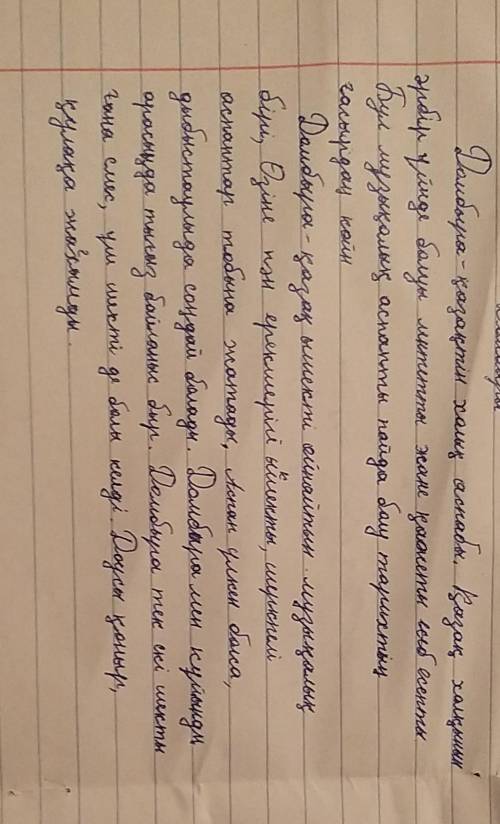 Домбыра - қазақтін халқ аспабы. Қазақ халқынын
әрбір үйінде болуы митетты және қажеты сиб есепты
Бұл музықалық аспапты пайда бау тарихтың
ғасырдан кейн
Домбыра - қазақ ышекті ойнайтын. музықалық
бірі, Өзіне пән ерекшерігі ышекты, шертпелі
аспаптар тобына жатады, Аспан үлкен быса,
дыбыстаулыда сондай болады. Домбыра мен күйынды
арасында тығыз байланыс быр. Домбыра тек екі шекты
ғана емес, үш шекті де болы келді. Доусы қоныр,
құлаққа жағымды.